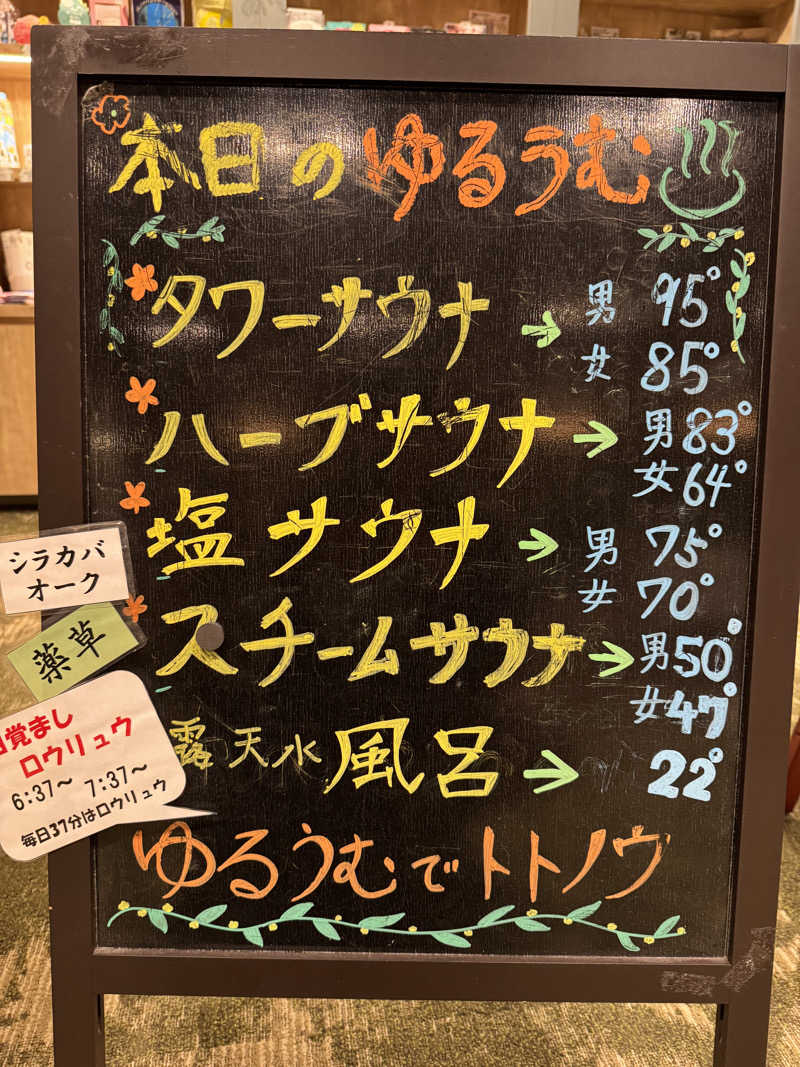 本日のゆるうむ
タワーサウナ → 男 95°
女 85°
ハーブサウナ → 男 83°
女 64°
塩サウナ → 男 75°
女 70°
スチームサウナ → 男 50°
女 47°
露天水風呂 → 22°
ゆるうむでトトノウ
シラカバ
オーク
薬草
目覚まし
ロウリュウ
6:37～ 7:37～
毎日37分はロウリュウ